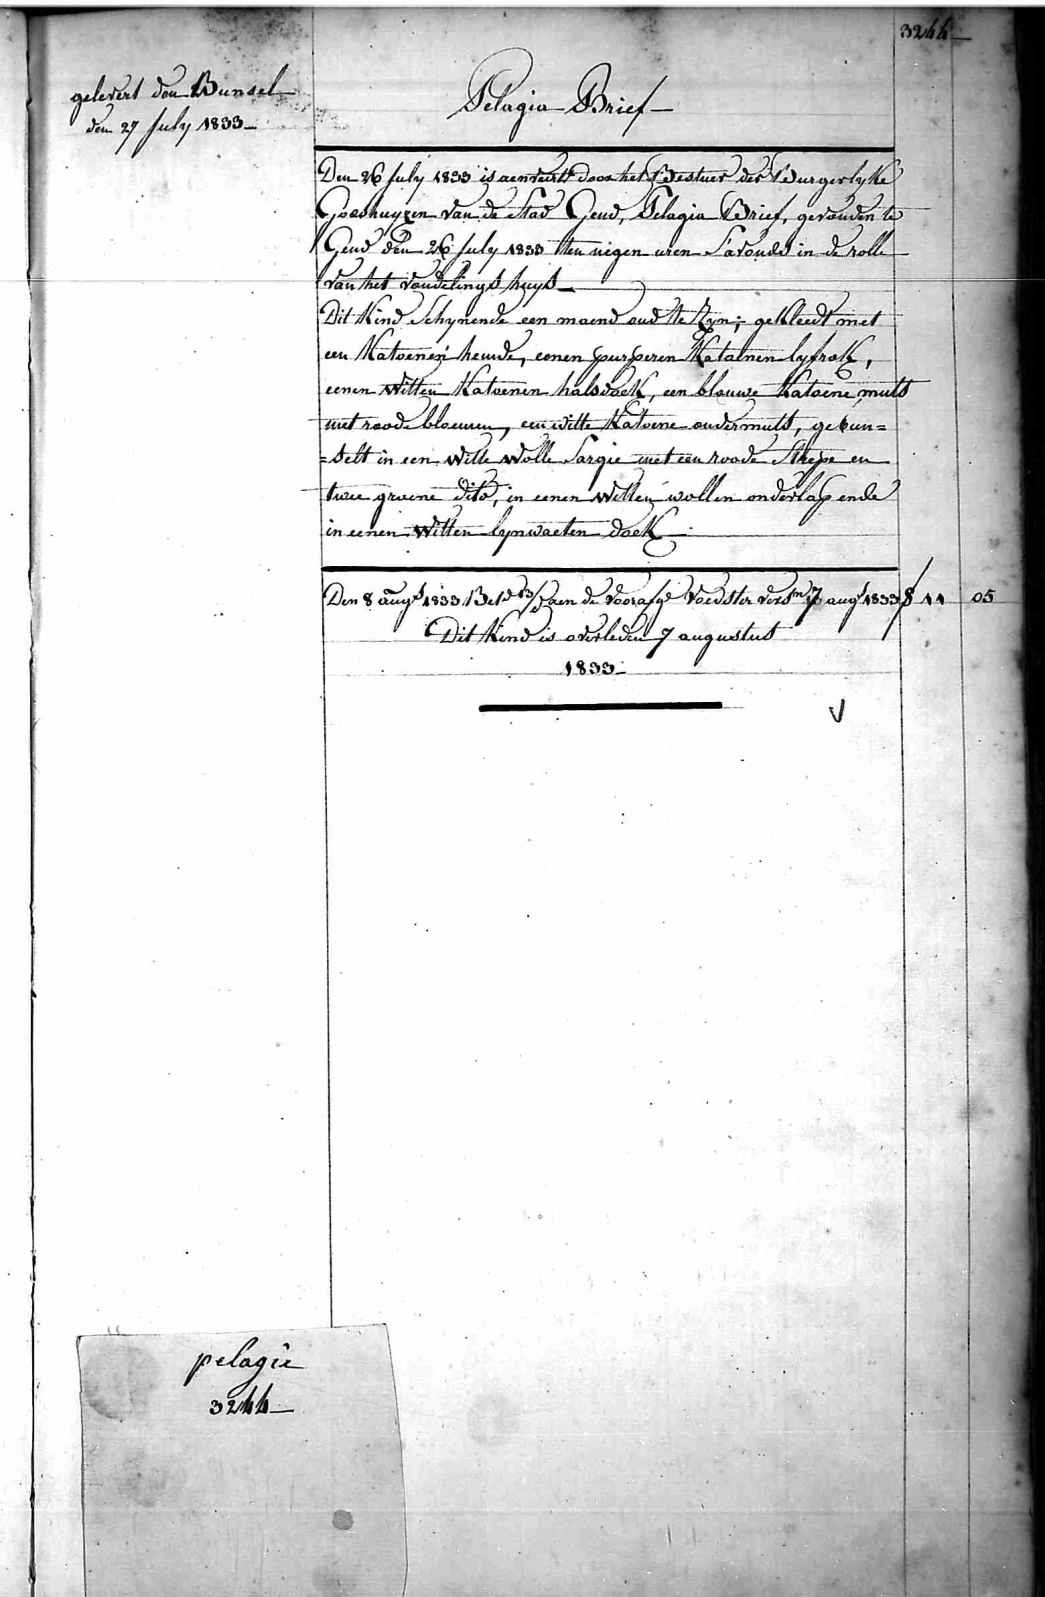 3244
gelevert den Bunsel
den 27 July 1833
Pelagia Brief
Den 26 July 1833 is aenveert door het Bestuer der Burgerlyke
Godshuyzen van de Stad Gend, Pelagia Brief, gevonden te
Gend den 26 July 1833 ten negen uren S'avonds in de rolle
van het vondelings huys
Dit Kind Schynende een maend oud te Zyn; gekleedt met
een Katoenen hemde, eenen purperen Katoenen lyfrok,
eenen Witten Katoenen halsdoek, een blauwe Katoene muts
met roode bloemen, een witte Katoene ondermuts, gebun=
=delt in een Witte Wolle Sargie met een roode Strepe en
twee groene dito, in eenen Witten wollen onderlap ende
in eenen Witten lynwaeten doek
Den 8 augs 1833 aen de voorafge Voedster 7 augs 1833 8 11 05
Dit Kind is overleden 7 augustus
1833
pelagie
3244